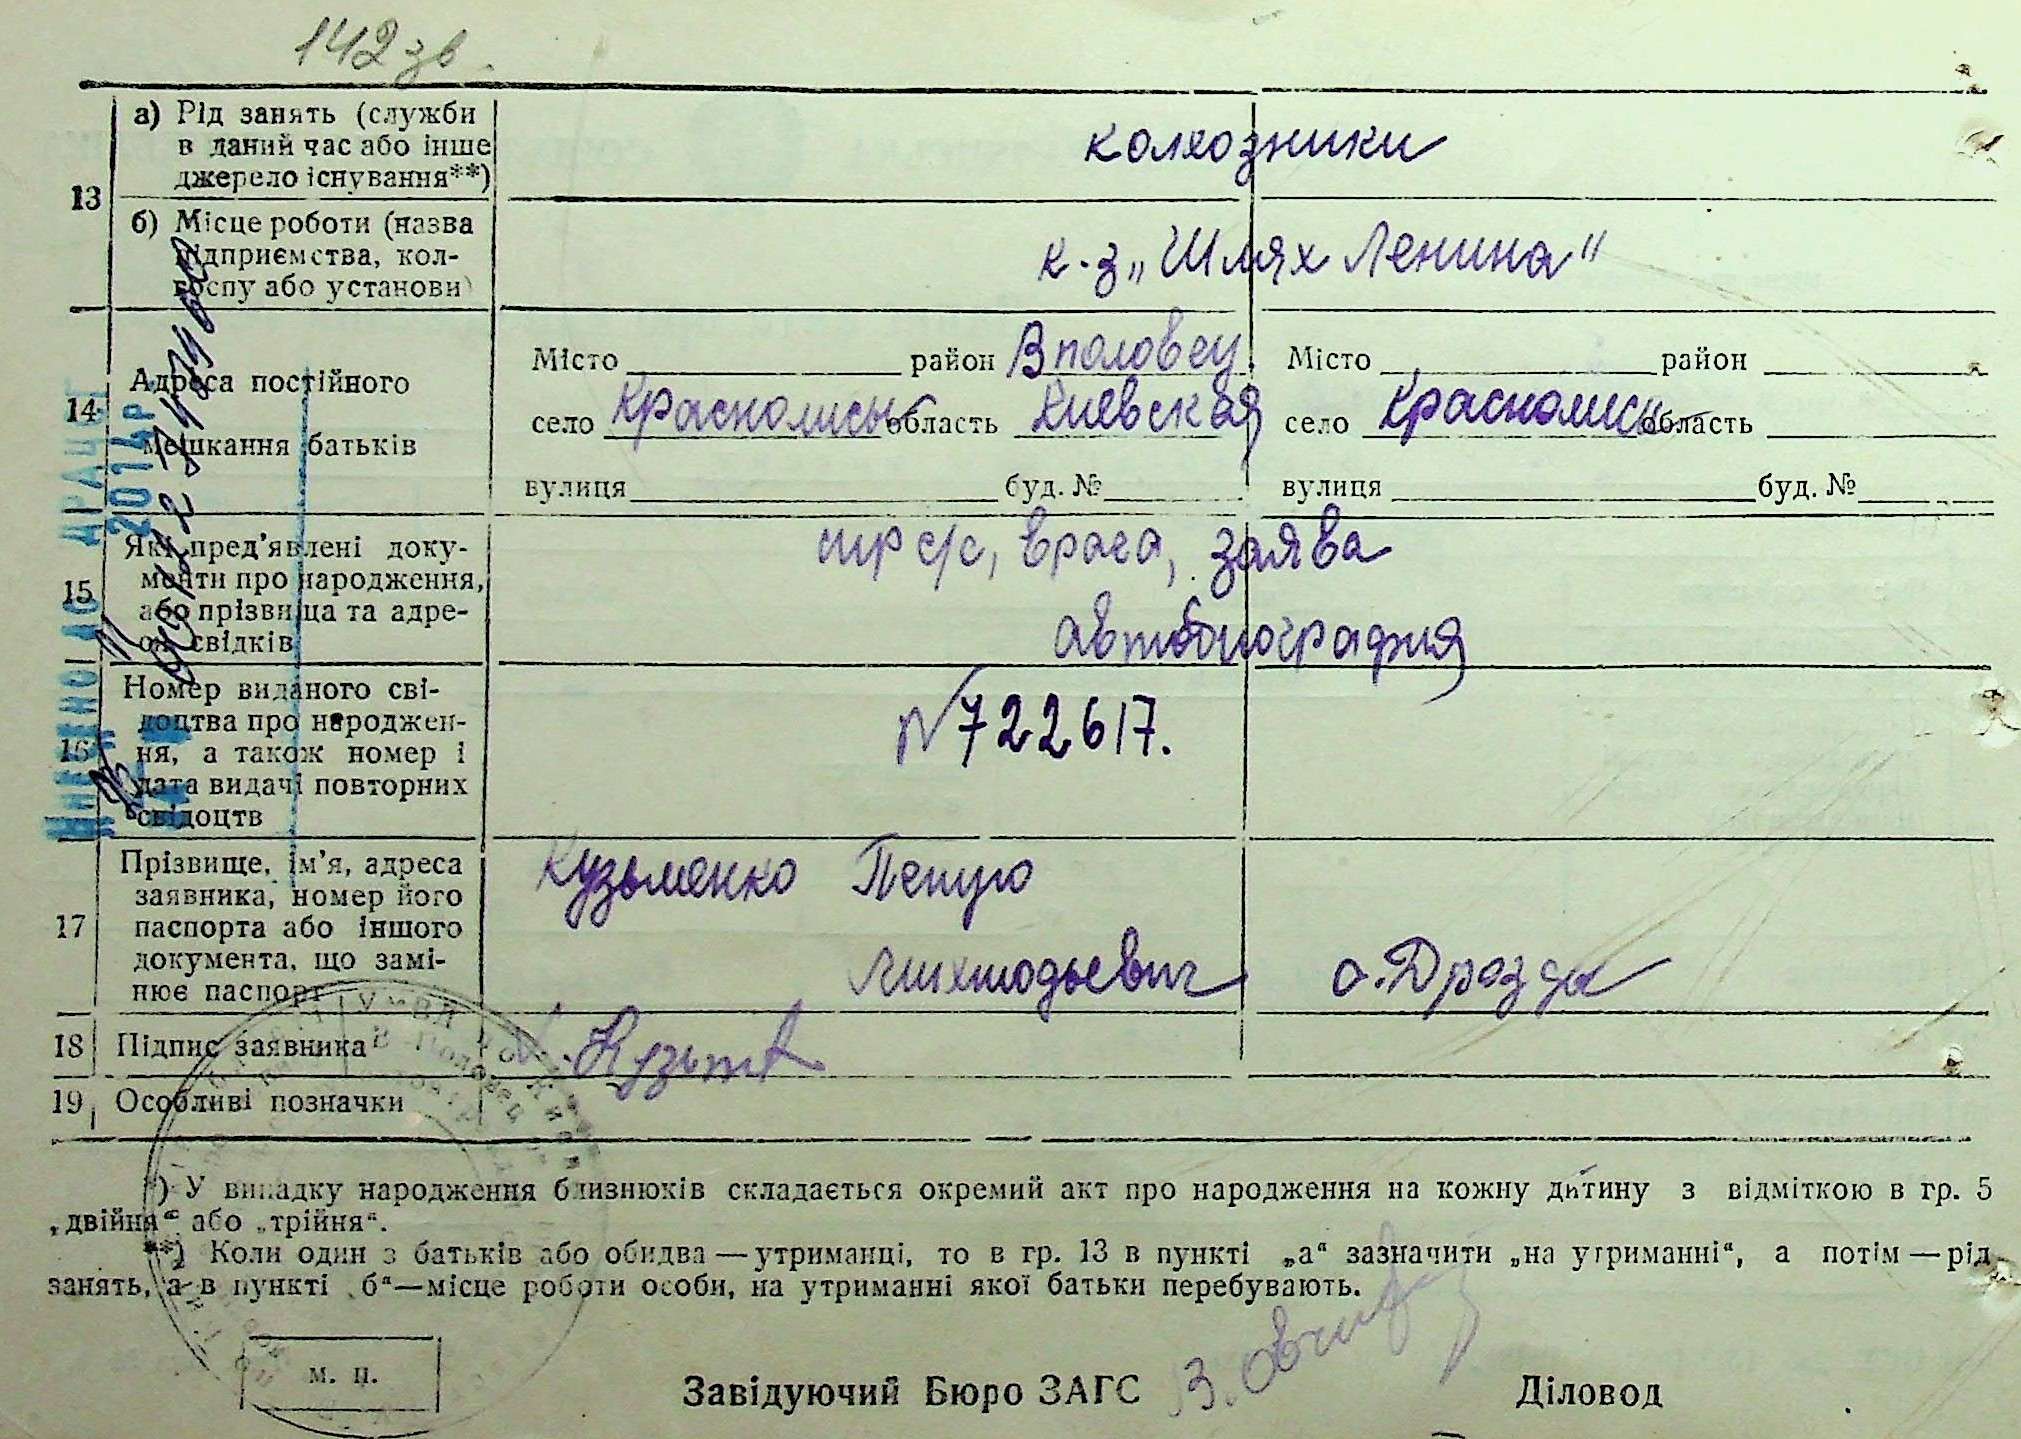 142 зв.
а) Рід занять (служби
в даний час або інше
джерело існування**)
колхозники
13
б) Місце роботи (назва
підприємства, кол-
госпу або установи)
к-з „Шлях Ленина"
14
Адреса постійного
мешкання батьків
Місто район В половец. Місто район
село область Киевская село область
вулиця буд. № вулиця буд. №
15
Які пред’явлені доку-
менти про народження,
або прізвища та адре-
си свідків
с/с, врача, заява
автобиография
16
Номер виданого сві-
доцтва про народжен-
ня, а також номер і
дата видачі повторних
свідоцтв
№ 722617.
17
Прізвище, ім’я, адреса
заявника, номер його
паспорта або іншого
документа, що замі-
нює паспорт
Кузьменко Петро
18 Підпис заявника
19 Особливі позначки
*) У випадку народження близнюків складається окремий акт про народження на кожну дитину з відміткою в гр. 5
„двійня“ або „трійня“.
**) Коли один з батьків або обидва — утриманці, то в гр. 13 в пункті „а“ зазначити „на утриманні“, а потім — рід
занять, а в пункті „б“—місце роботи особи, на утриманні якої батьки перебувають.
м. п.
Завідуючий Бюро ЗАГС Діловод
2014р